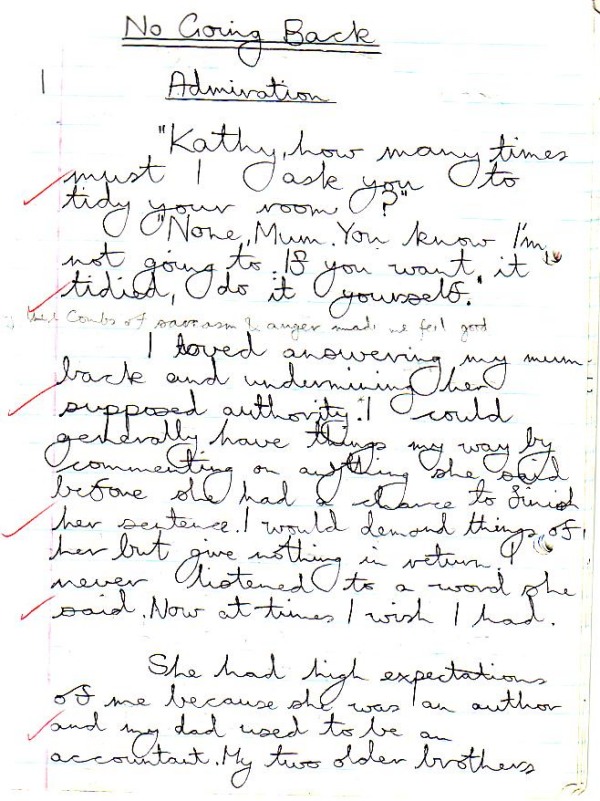 No Going Back
1
Admiration
"Kathy, how many times
must I ask you to
tidy your room?"
"None, Mum. You know I'm
not going to. If you want it
tidied, do it yourself."
of sarcasm & anger made me feel good
I loved answering my mum
back and undermining her
supposed authority. I could
generally have things my way by
commenting on anything she said
before she had a chance to finish
her sentence. I would demand things of
her but give nothing in return. I
never listened to a word she
said. Now at times I wish I had.
She had high expectations
of me because she was an author
and my dad used to be an
accountant. My two older brothers